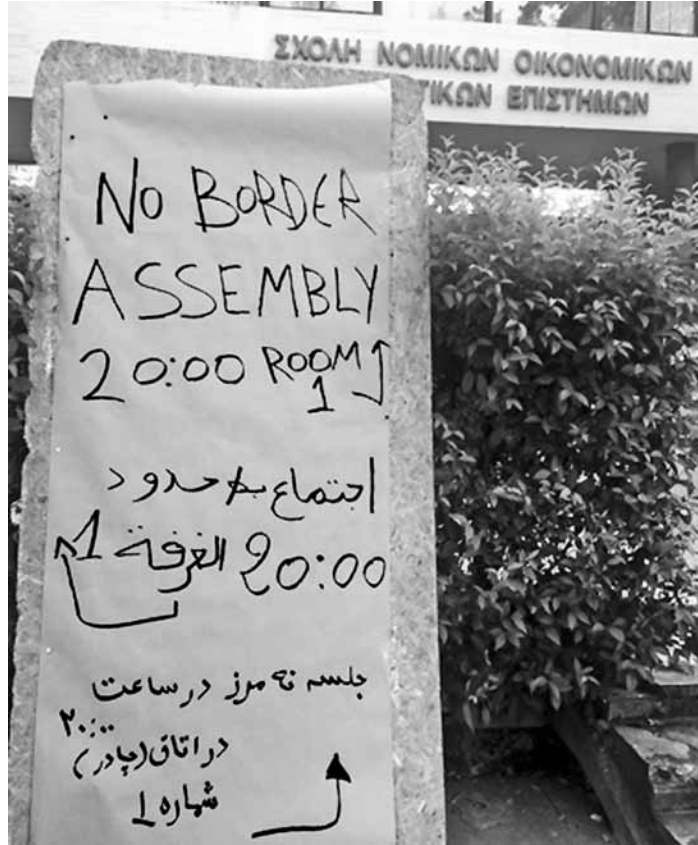 ΣΧΟΛΗ ΝΟΜΙΚΩΝ ΟΙΚΟΝΟΜΙΚΩΝ
ΤΙΚΩΝ ΕΠΙΣΤΗΜΩΝ
NO BORDER
ASSEMBLY
20:00 ROOM
1
اجتماع بلا حدود
20:00 الغرفة 1
جلسه نه مرز در ساعت
۲۰:۰۰
در اتاق (چادر)
شماره 1